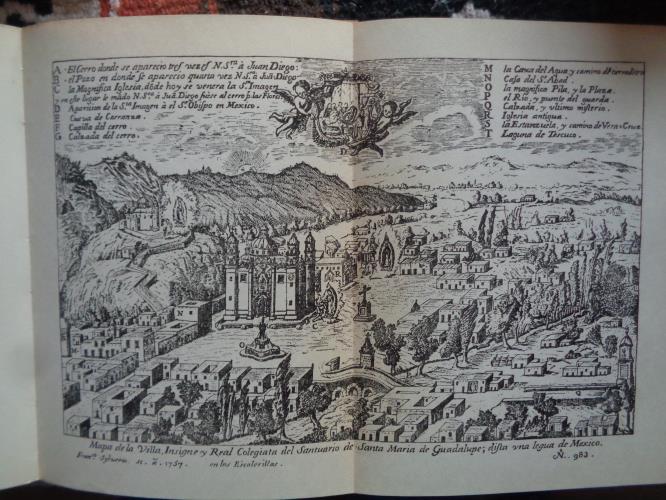 A · El Cerro donde se aparecio tres vezes N. Sra. à Juan Diego:
B · el Pozo en donde se aparecio quarta vez N. S. à Juā Diego
C la Magnifica Iglesia, dōde hoy se venera la Sta. Imagen
D y en este lugar le mādo N. Sra. à Juā Diego
Aparicion de la Sta. Imagen à el Sr. Obispo en Mexico.
E Cueva de Carranza.
F Capilla del cerro.
G Calzada del cerro.
M la Caxa del Agua y camino
N Casa del Sr. Abad.
O la magnifica Pila, y la Plaza.
P el Rio, y puente del guarda.
Q Calzada, y ultimo misterio.
R Iglesia antigua.
S la Estanzuela, y camino de Vera=Cruz
T Laguna de Tescuco.
D
Mapa de la Villa, Insigne y Real Colegiata del Santuario de Santa Maria de Guadalupe; dista vna legua de Mexico.
1757 en las Escalerillas. N. 983.